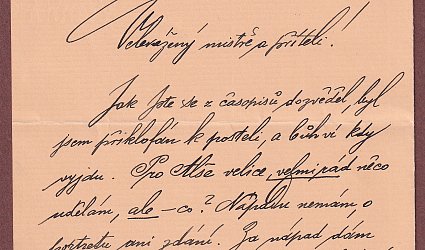 Velevážený mistře a příteli!
Jak jste se z časopisů dozvěděl, byl
jsem přiklopán k posteli, a bůh ví kdy
vyjdu. Pro Alše velice, velmi rád něco
udělám, ale – co? Nápadu nemám o
portretu ani zdání. Za nápad dám